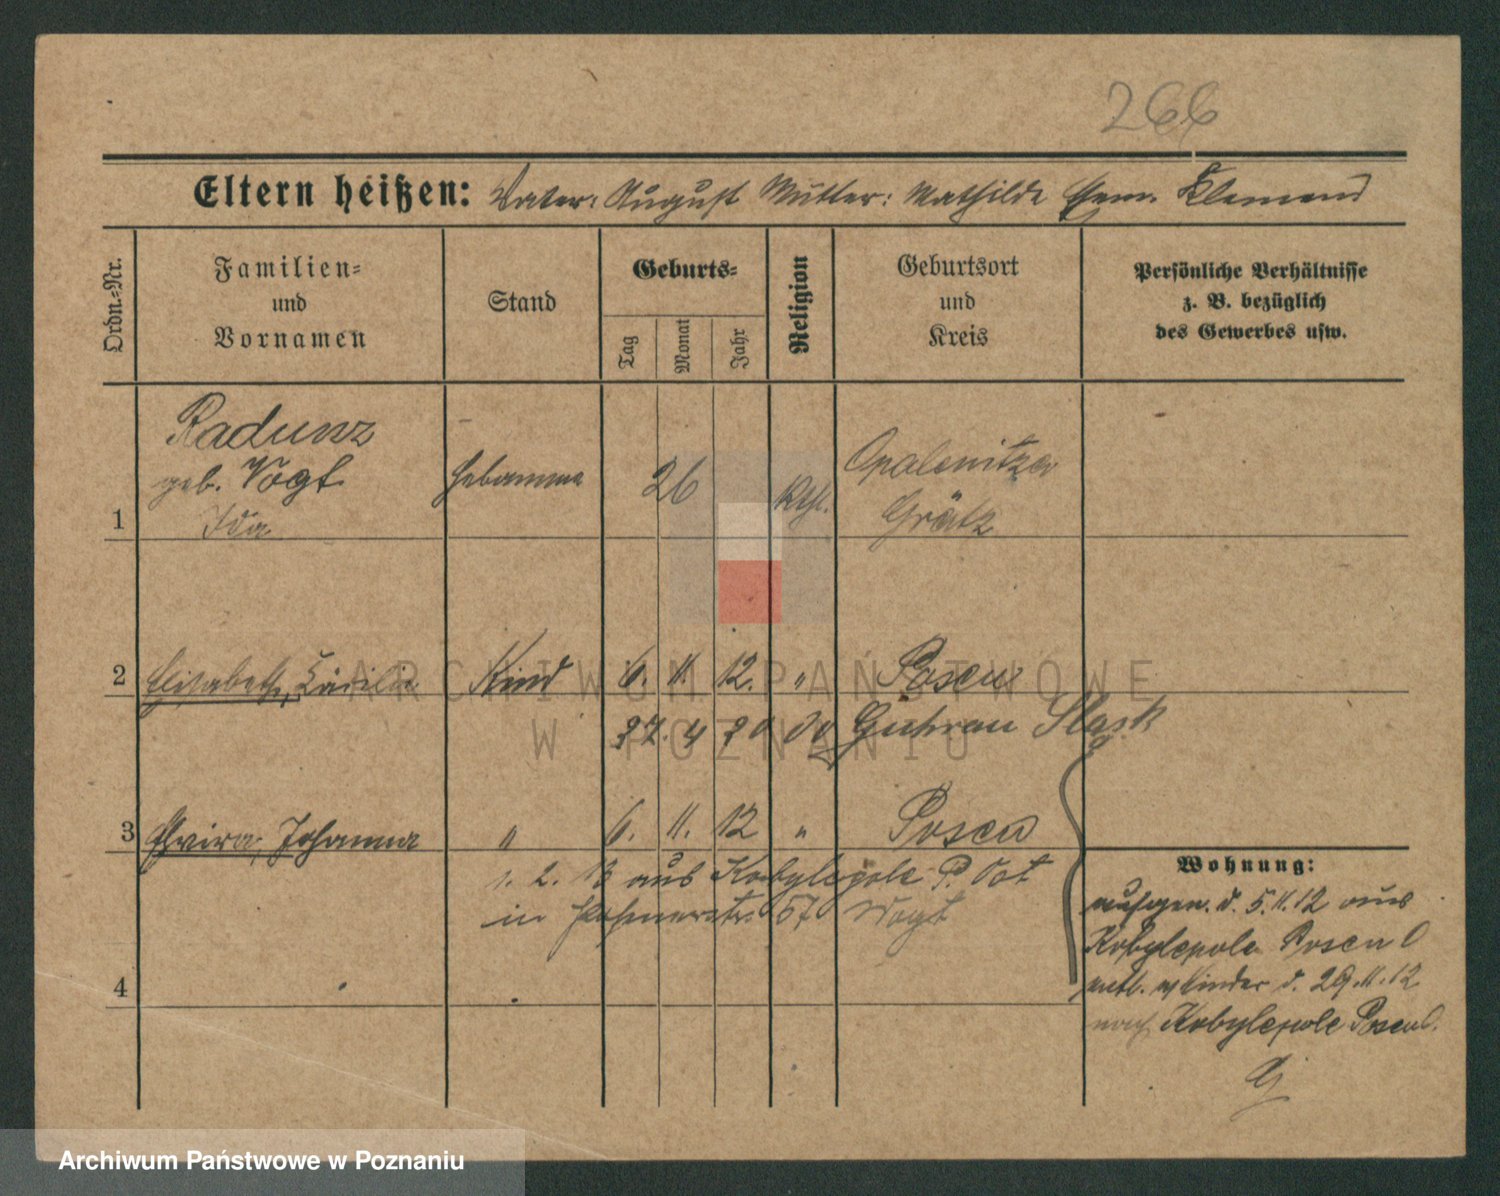 266
Eltern heißen: Vater: August Mutter: Mathilde Klemens
Ordn.=Nr.
Familien=
und
Vornamen
Stand
Geburts=
Tag
Monat
Jahr
Religion
Geburtsort
und
Kreis
Persönliche Verhältnisse
z. B. bezüglich
des Gewerbes usw.
1
Radunz
geb. Vogt
Ida
Hebamme
26
Kth.
Opalenitza
Grätz
2
Elisabeth, Cäcilie
Kind
6. 11. 12. "
Posen
27. 4 20 Guhrau Slask
3
Elvira, Johanna
"
6. 11. 12 "
Posen
1. 2. 13 aus Kobylepole P. Ost
in Posenerstr. 57 Vogt
4
Wohnung:
aufgen. d. 5.11.12 aus
Kobylepole Posen O
entl. Kinder d. 29.11.12
nach Kobylepole Posen O.
ARCHIWUM PAŃSTWOWE
W POZNANIU
Archiwum Państwowe w Poznaniu